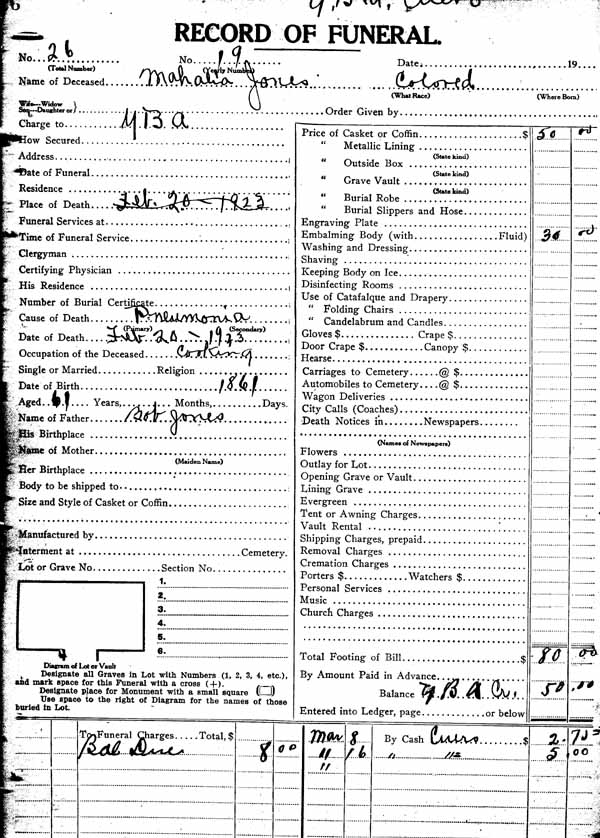 RECORD OF FUNERAL.
No. 26 No. 19 Date 19
(Total Number) (Yearly Number)
Name of Deceased Mahalia Jones Colored
(What Race) (Where Born)
Wife—Widow
Son—Daughter of Order Given by
Charge to Y.B.A
How Secured
Address
Date of Funeral
Residence
Place of Death Feb. 20 - 1923
Funeral Services at
Time of Funeral Service
Clergyman
Certifying Physician
His Residence
Number of Burial Certificate
Cause of Death Pneumonia
(Primary) (Secondary)
Date of Death Feb 20 - 1923
Occupation of the Deceased Cooking
Single or Married Religion
Date of Birth 1861
Aged 61 Years, Months, Days.
Name of Father Bob Jones
His Birthplace
Name of Mother
(Maiden Name)
Her Birthplace
Body to be shipped to
Size and Style of Casket or Coffin
Manufactured by
Interment at Cemetery.
Lot or Grave No. Section No.
1.
2.
3.
4.
5.
6.
Diagram of Lot or Vault
Designate all Graves in Lot with Numbers (1, 2, 3, 4, etc.),
and mark space for this Funeral with a cross (+).
Designate place for Monument with a small square
Use space to the right of Diagram for the names of those
buried in Lot.
Price of Casket or Coffin $ 50 00
" Metallic Lining
(State kind)
" Outside Box
(State kind)
" Grave Vault
(State kind)
" Burial Robe
" Burial Slippers and Hose
Engraving Plate
Embalming Body (with Fluid) 30 00
Washing and Dressing
Shaving
Keeping Body on Ice
Disinfecting Rooms
Use of Catafalque and Drapery
" Folding Chairs
" Candelabrum and Candles
Gloves $ Crape $
Door Crape $ Canopy $
Hearse
Carriages to Cemetery @ $
Automobiles to Cemetery @ $
Wagon Deliveries
City Calls (Coaches)
Death Notices in Newspapers
(Names of Newspapers)
Flowers
Outlay for Lot
Opening Grave or Vault
Lining Grave
Evergreen
Tent or Awning Charges
Vault Rental
Shipping Charges, prepaid
Removal Charges
Cremation Charges
Porters $ Watchers $
Personal Services
Music
Church Charges
Total Footing of Bill $ 80 00
By Amount Paid in Advance
Balance Y.B.A 50.00
Entered into Ledger, page or below
To Funeral Charges Total, $ Mar 8 By Cash $ 2.75
Bal Due 8 00 " 16 " 5.00
"